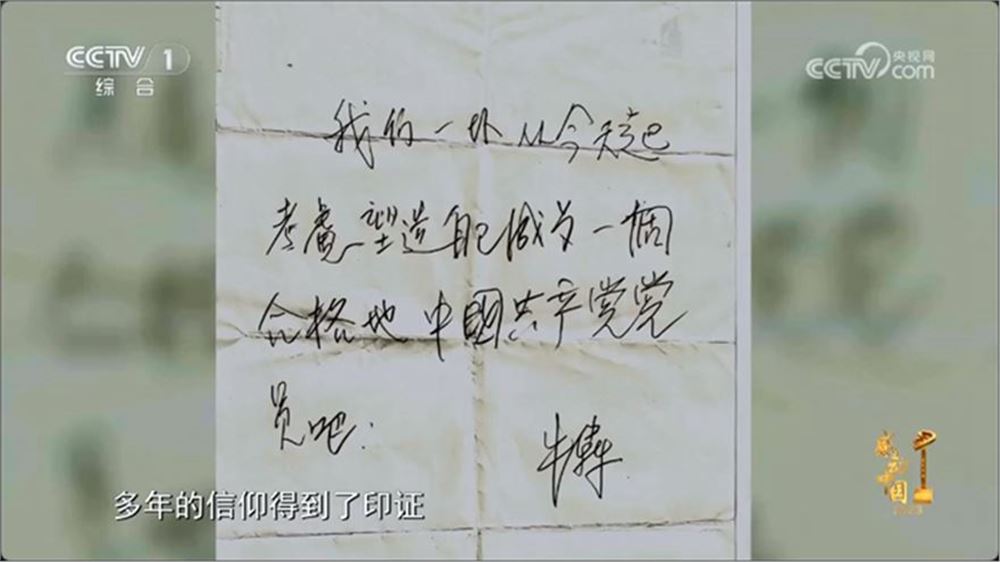 CCTV 1
综合
央视网
CCTV.com
我的一切从今天起
考慮塑造自己成为一個
合格地中國共产党党
员吧.
牛犇
感动中国
2023
多年的信仰得到了印证